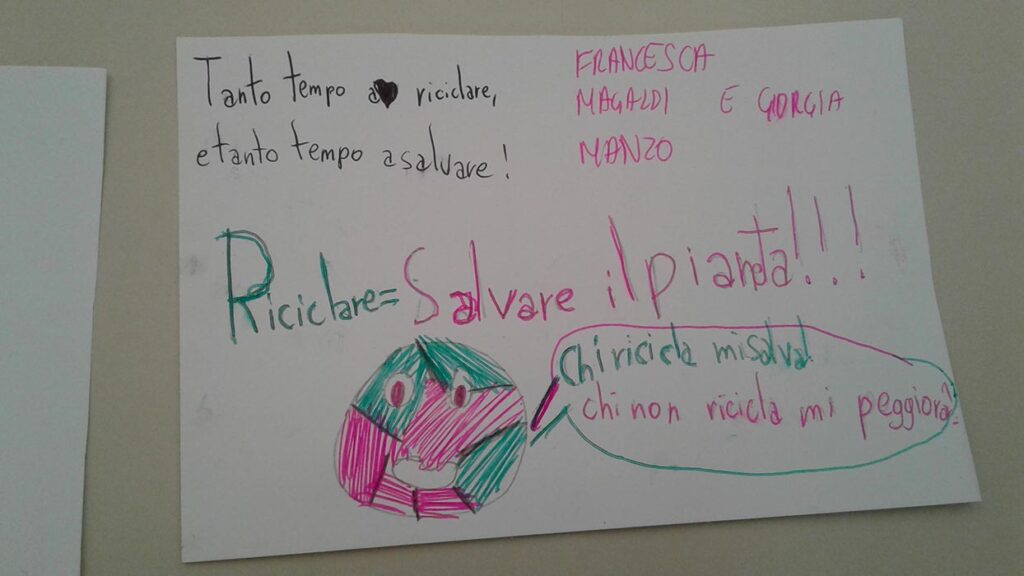 Tanto tempo a riciclare,
e tanto tempo a salvare!
FRANCESCA
MAGALDI E GIORGIA
MANZO
Riciclare= Salvare il pianeta!!!
Chi ricicla mi salva!
chi non ricicla mi peggiora!